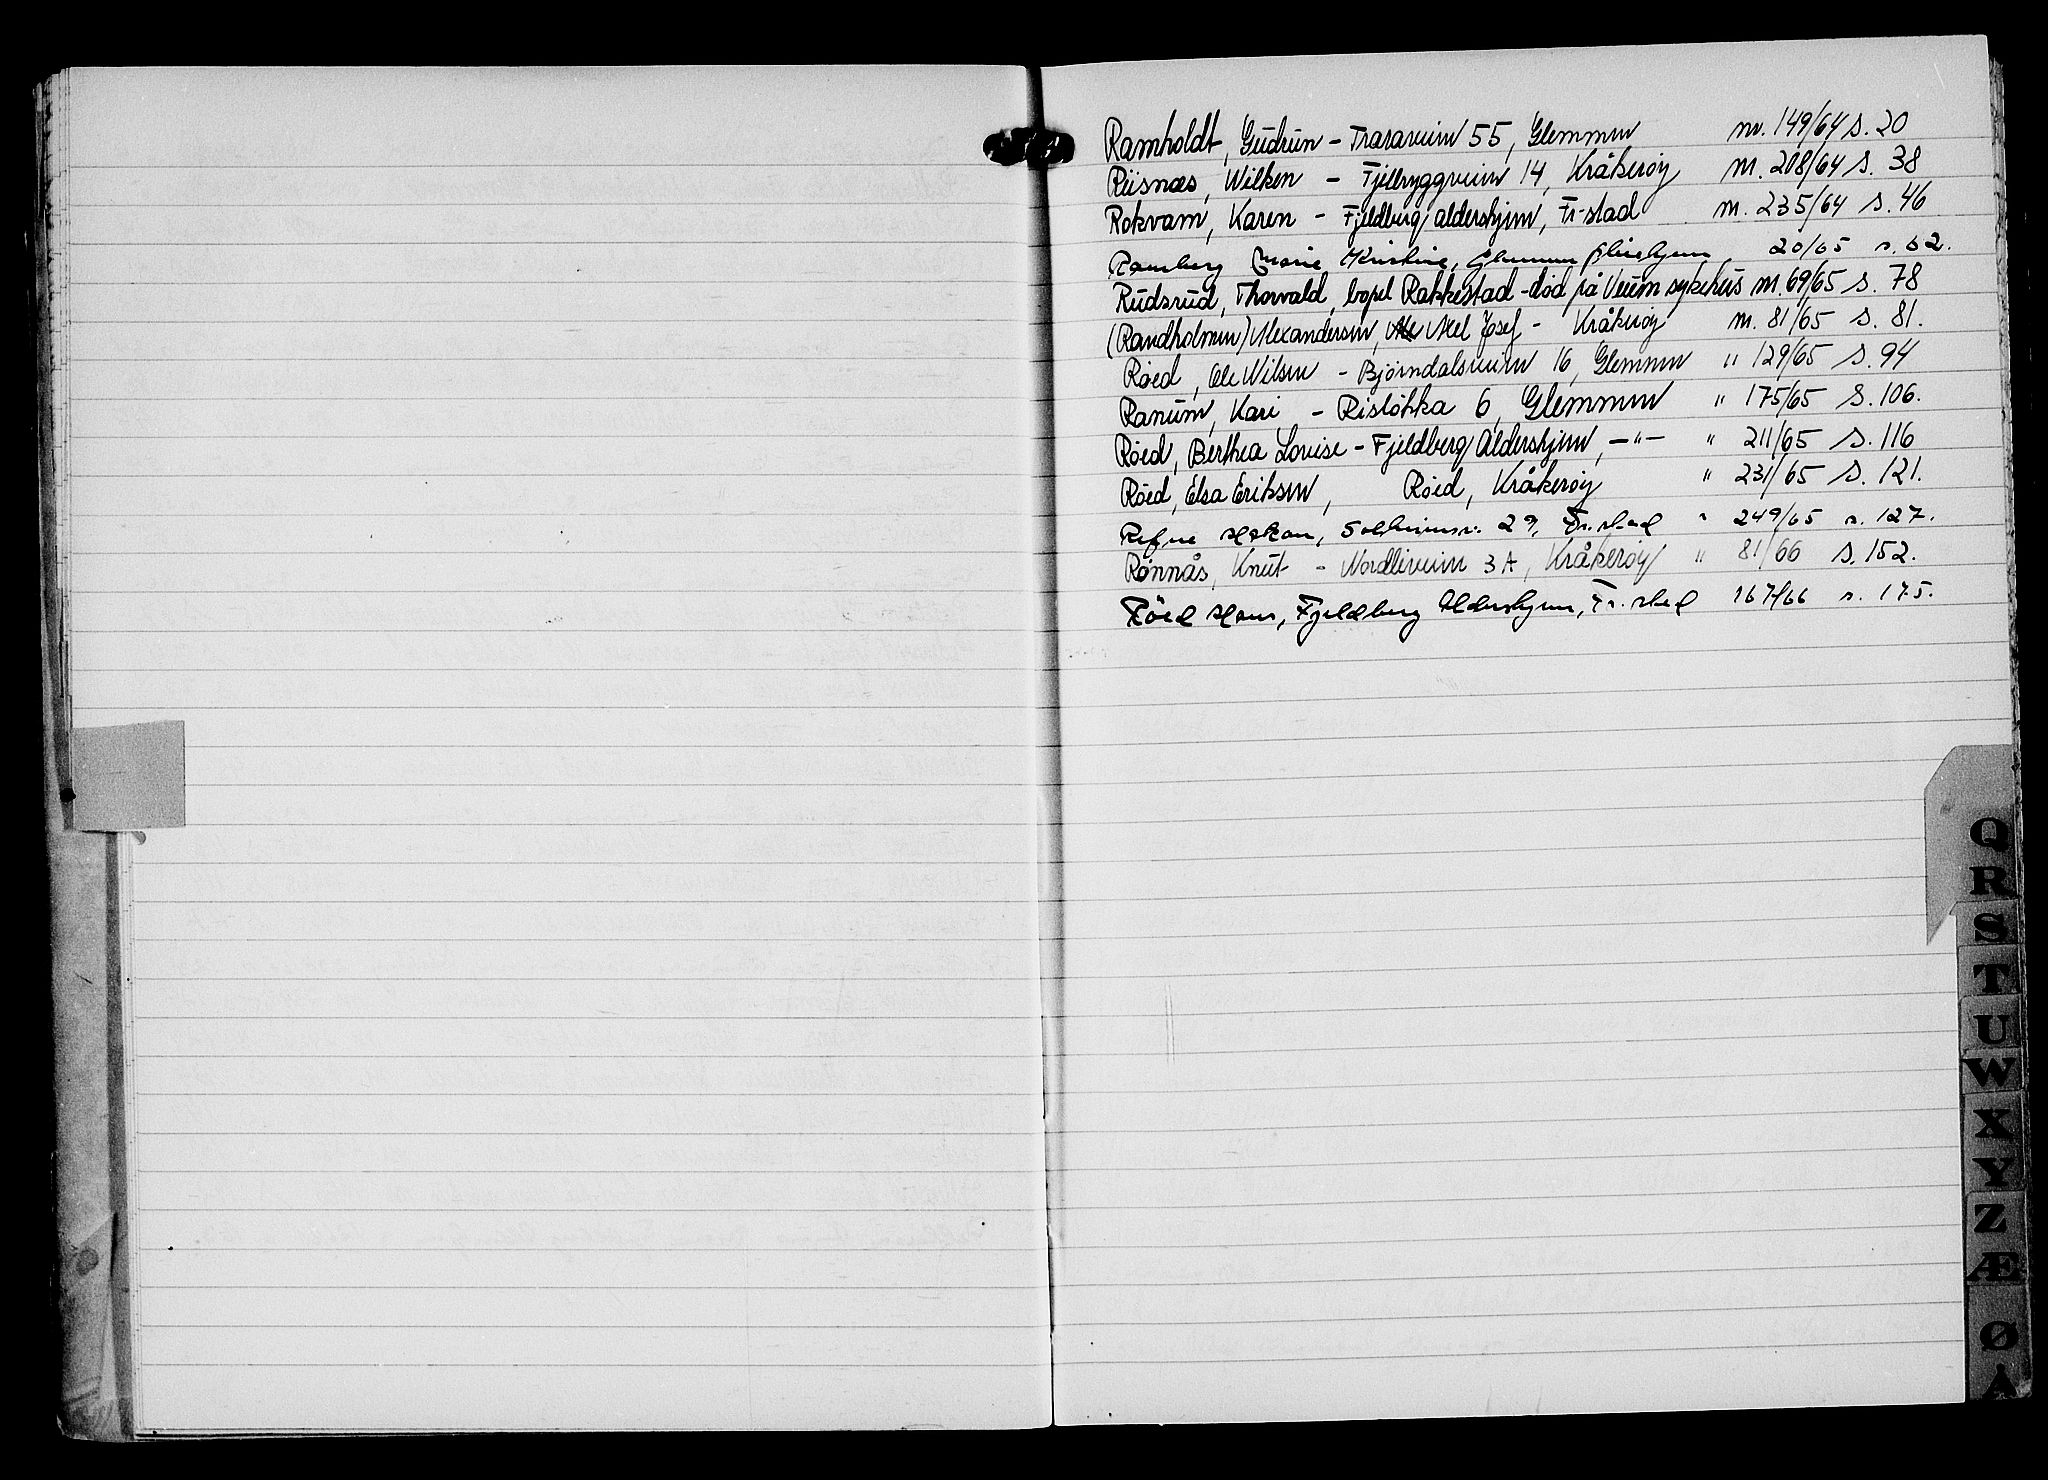 Ramholdt, Gudrun - Traraveien 55, Glemmen nr. 149/64 s. 20
Riisnæs, Wilken - Fjellryggveien 14, Kråkerøy nr. 208/64 s. 38
Rokvam, Karen - Fjeldberg aldershjem, Fr-stad nr. 235/64 s. 46
Ramberg Marie Kristine, Glemmen pleiehjem 20/65 s. 62.
Rudsrud, Thorvald, bopel Rakkestad - død på Veum sykehus nr. 69/65 s. 78
(Randholmen) Alexandersen, Axel Josef - Kråkerøy nr. 81/65 s. 81.
Røed, Ole Nilsen - Bjørndalsveien 16, Glemmen " 129/65 s. 94
Ranum, Kari - Risløkka 6, Glemmen " 175/65 s. 106.
Røed, Berthea Lovise - Fjeldberg Aldershjem, -"- " 211/65 s. 116
Røed, Elsa Eriksen, Røed, Kråkerøy " 231/65 s. 121.
Refne Håkon, Solheimsv. 29, Fr.stad " 249/65 s. 127.
Rønnås, Knut - Nordliveien 3A, Kråkerøy " 81/66 s. 152.
Røed Hans, Fjeldberg Aldershjem, Fr.stad 167/66 s. 175.
Q
R
S
T
U
W
X
Y
Z
Æ
Ø
Å